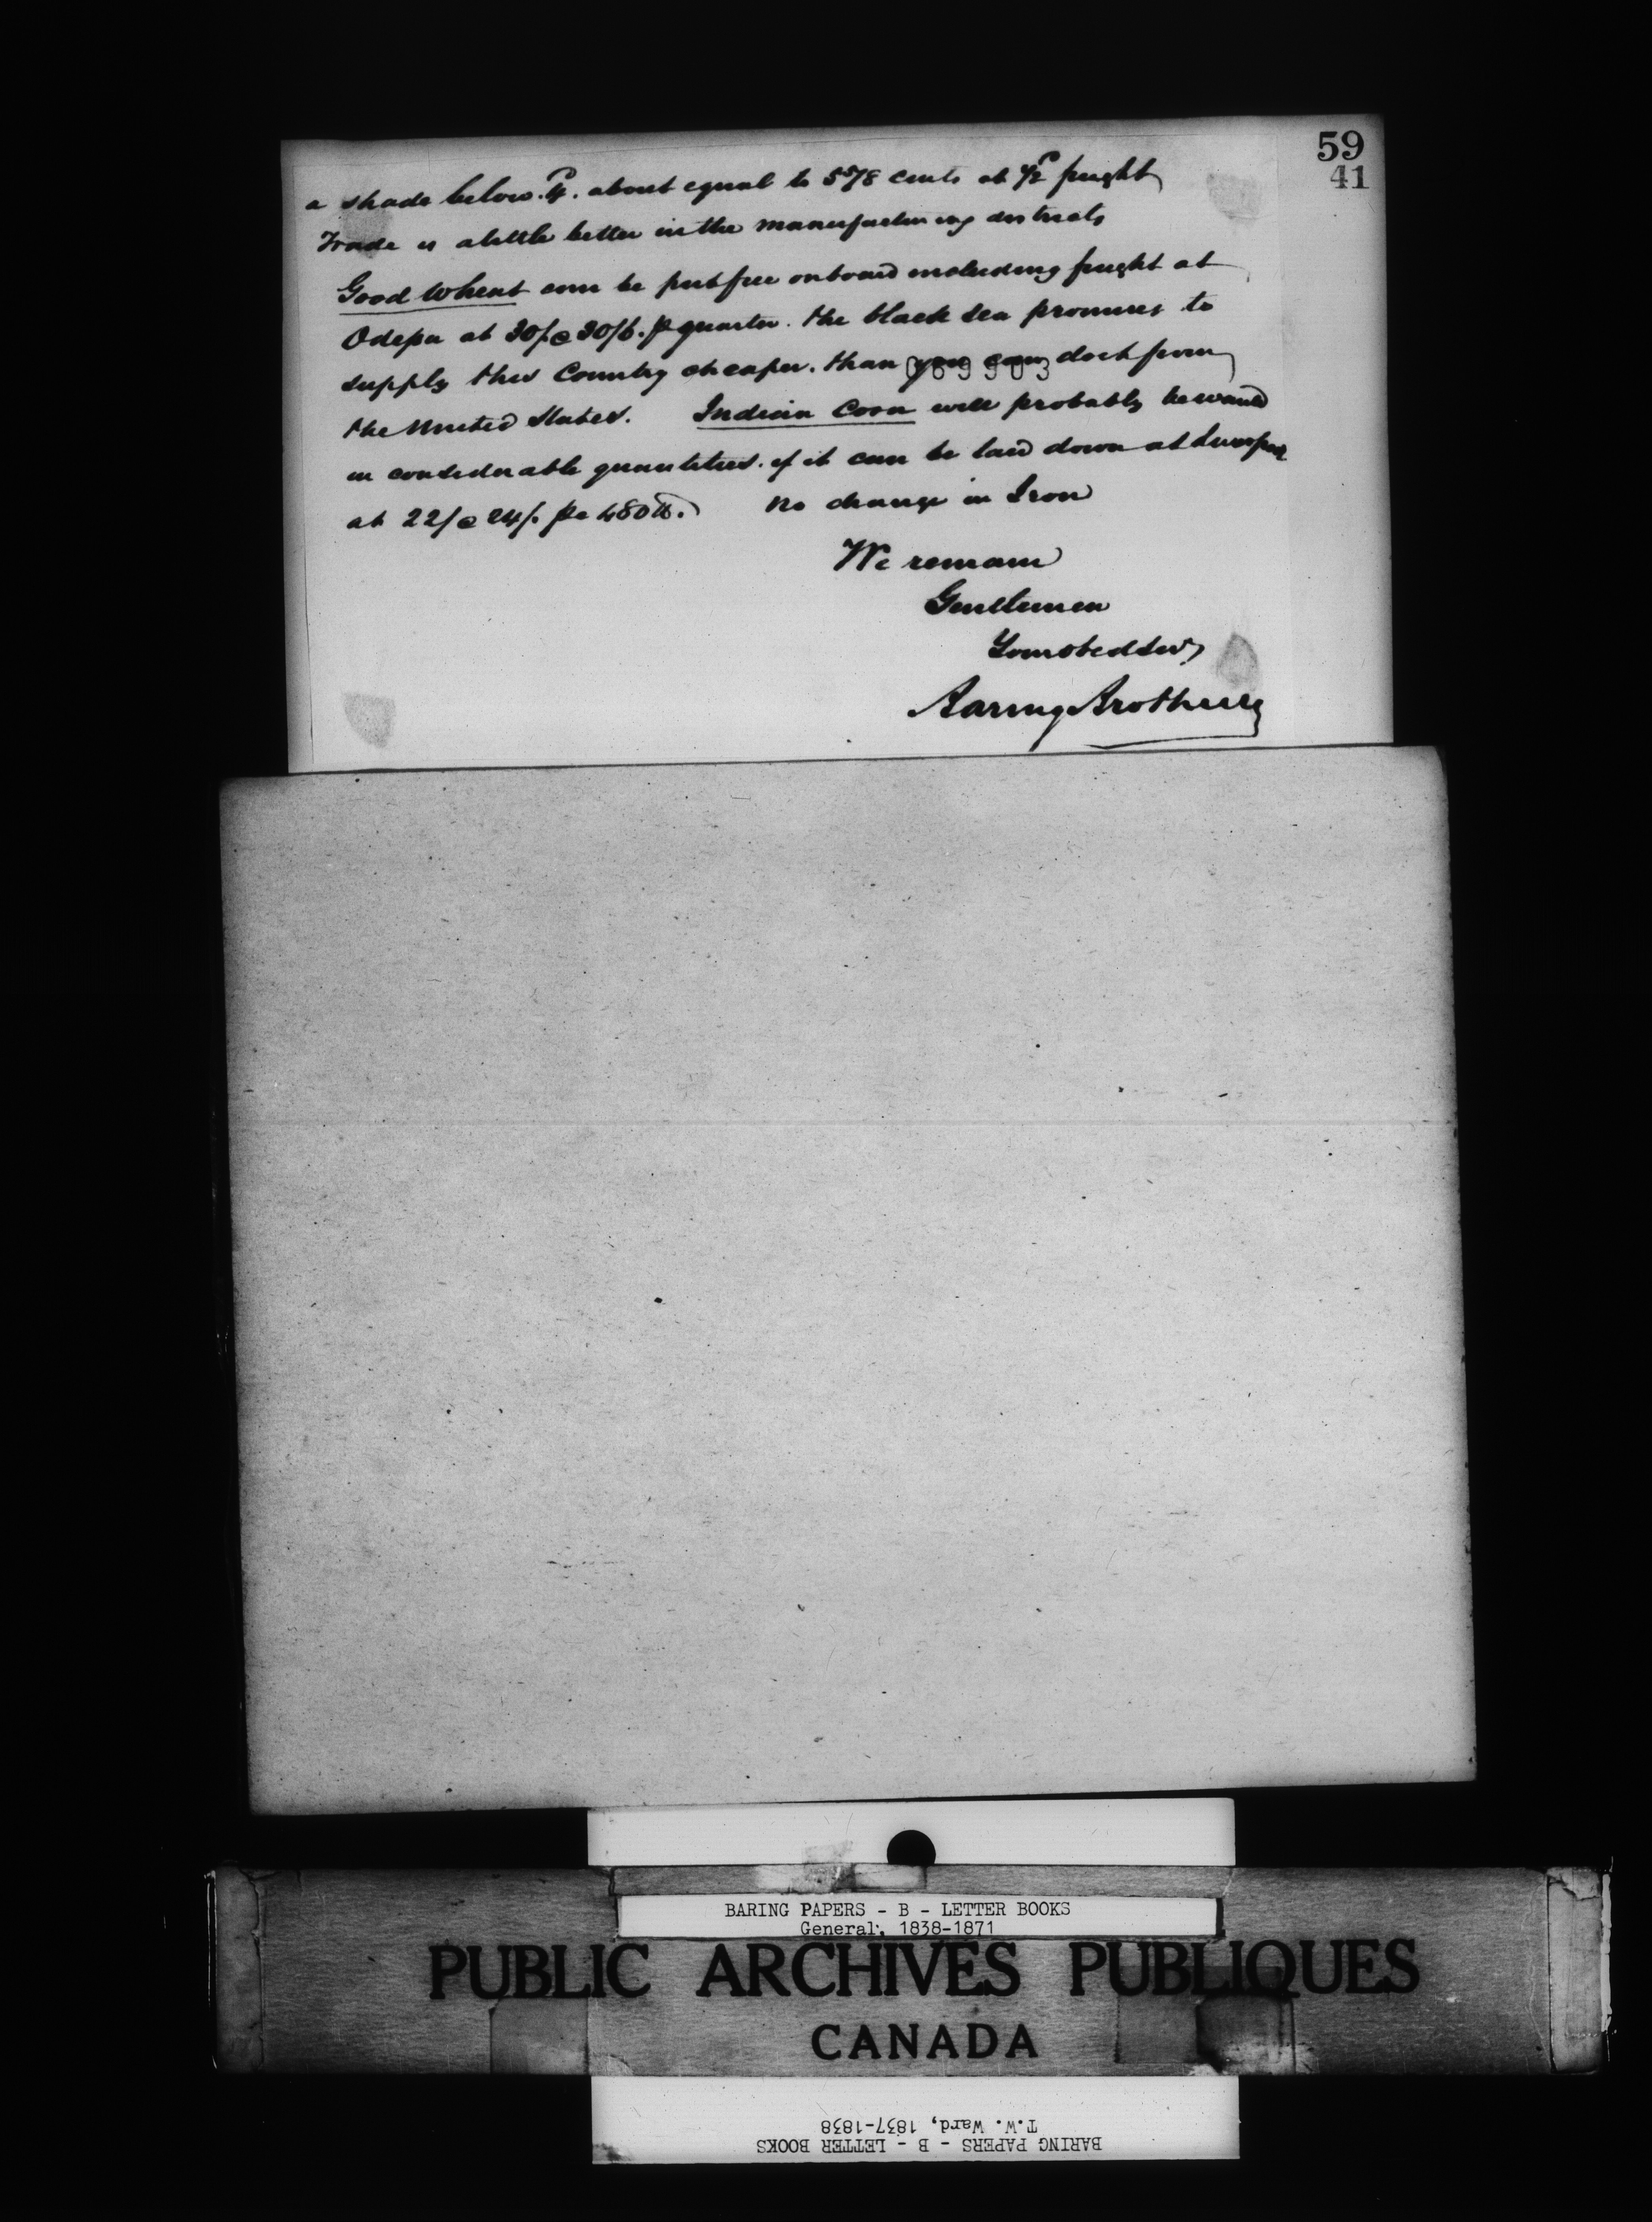 59
41
a shade below. 4ᵈ. about equal to 5 5/8 cents at 1/2ᵈ freight
Trade is a little better in the manufacturing districts
Good Wheat can be put free onboard including freight at
Odessa at 30/. @ 30/6. p quarter. the black Sea promises to
supply this Country cheaper. than you can do it from
069903
the United States. Indian Corn will probably be wanted
in considerable quantities. if it can be laid down at Liverpool
at 22/ @ 24/. pr 480 lb. No change in Iron
We remain
Gentlemen
Your obed Serv
Baring Brothers
BARING PAPERS - B - LETTER BOOKS
General, 1838-1871
PUBLIC ARCHIVES PUBLIQUES
CANADA
T.W. Ward, 1837-1838
BARING PAPERS - B - LETTER BOOKS